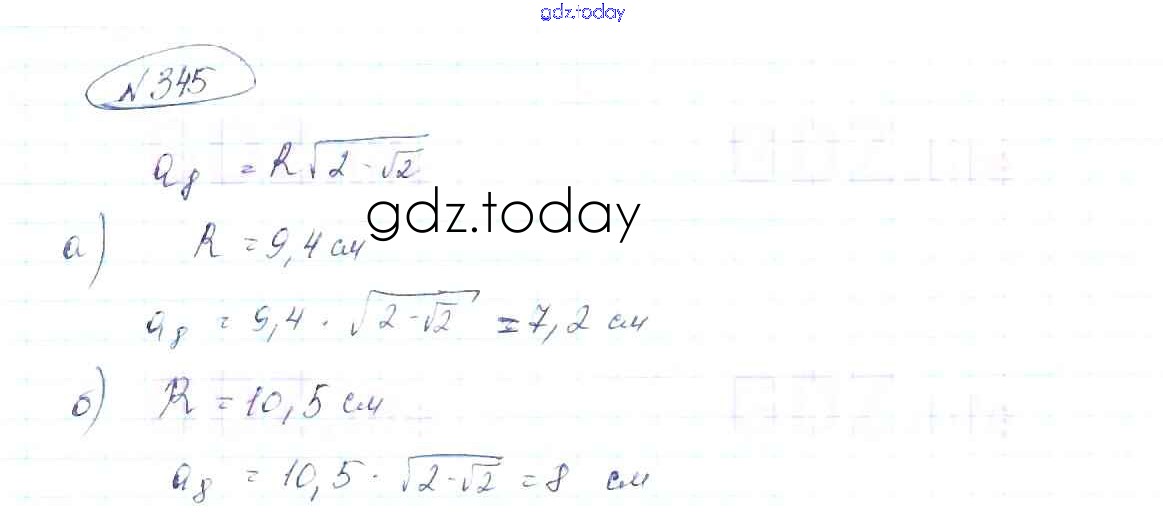 gdz.today
N 345
a₈ = R√(2-√2)
gdz.today
а) R = 9,4 см
a₈ = 9,4 · √(2-√2) = 7,2 см
б) R = 10,5 см
a₈ = 10,5 · √(2-√2) = 8 см